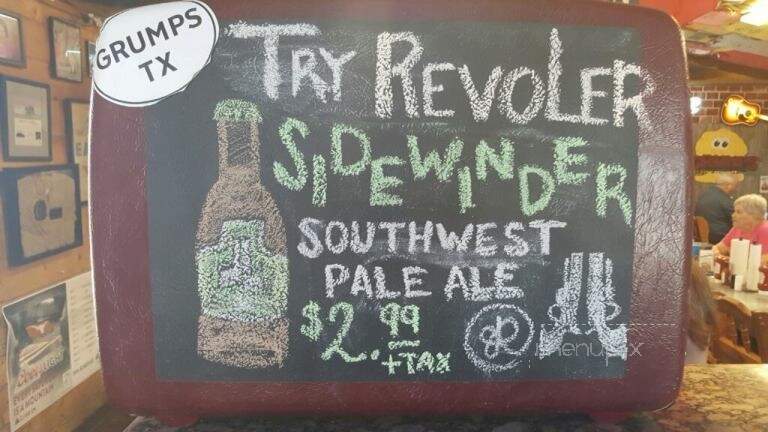 GRUMPS
TX
TRY REVOLER
SIDEWINDER
SOUTHWEST
PALE ALE
$2.99
+TAX
menupix
EVERY
IS A MOUNTAIN